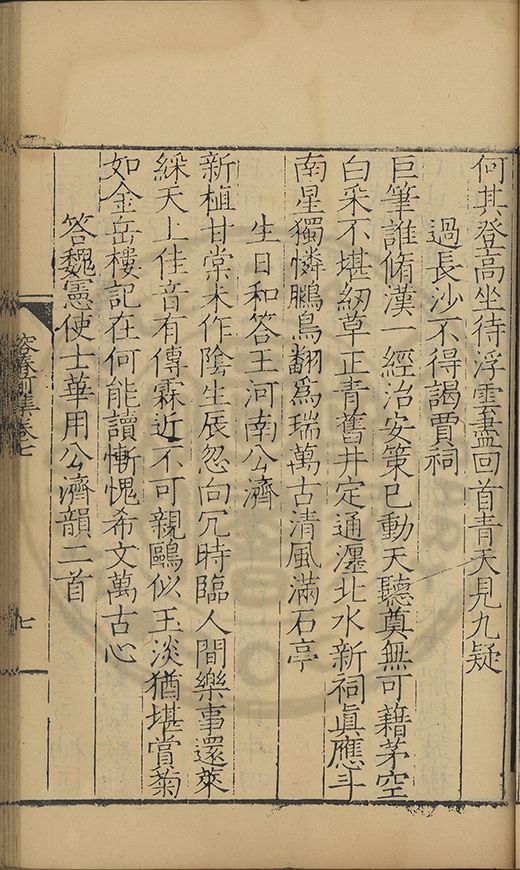 何其登高坐待浮雲盡回首青天見九疑
過長沙不得謁賈祠
巨筆誰脩漢一經治安策已動天聽奠無可籍茅空
白采不堪紉草正青舊井定通瀍北水新祠眞應斗
南星獨憐鵩鳥翻爲瑞萬古清風滿石亭
生日和答王河南公濟
新植甘棠未作陰生辰忽向冗時臨人間樂事還萊
綵天上佳音有傳霖近不可親鷗似玉淡猶堪賞菊
如金岳樓記在何能讀慚愧希文萬古心
答魏憲使士華用公濟韻二首
容春前集卷七
七